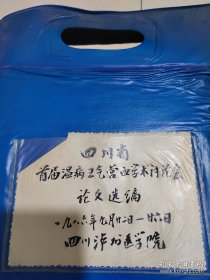 四川省
首届温病卫气营血学术讨论会
论文选编
一九八六年九月廿二日—廿六日
四川泸州医学院